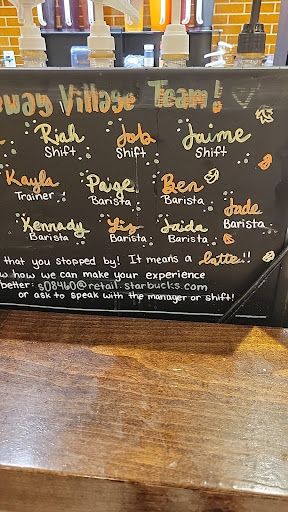 way Village Team!
Riah Job Jaime
Shift Shift Shift
Kayla Paige Ben
Trainer Barista Barista Jade
Kennady Liz Jaida Barista
Barista Barista Barista
that you stopped by! It means a latte!!
w how we can make your experience
better: s08460@retail.starbucks.com
or ask to speak with the manager or shift!